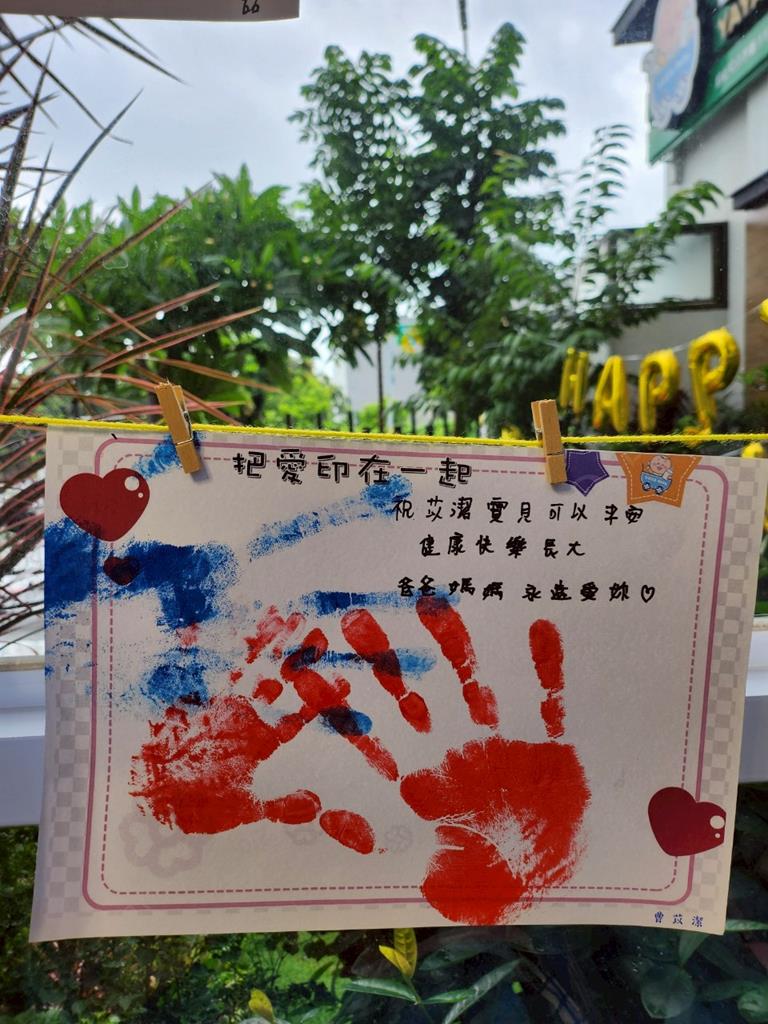 66
YAYA
HAPP
把愛印在一起
祝苡潔寶貝可以平安
健康快樂長大
爸爸媽媽永遠愛妳♡
曹苡潔